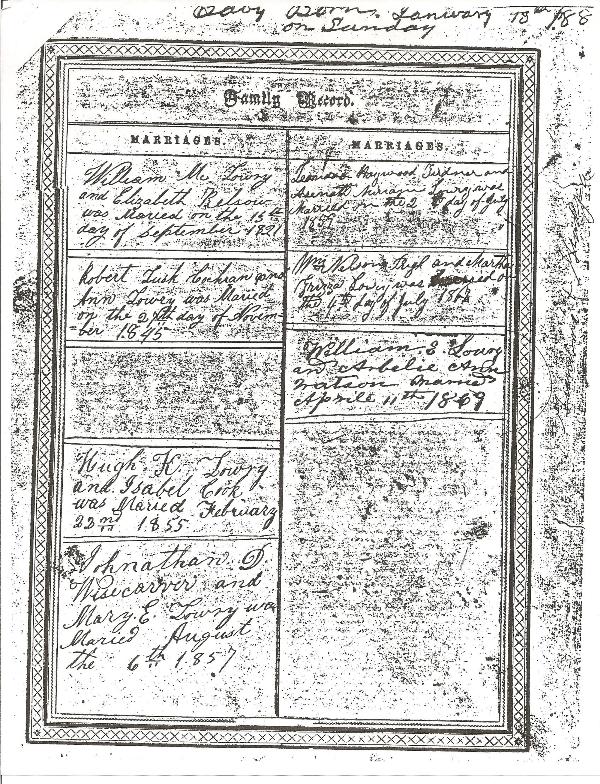 Born January 13th 188
on Sunday
Family Record.
MARRIAGES.
William Mc Lowry
and Elizabeth Kelsow
was Maried on the 15th
day of September 1821
Robert Lusk Cochran and
Ann Lowry was Maried
on the 27th day of Novem-
ber 1845
Hugh K. Lowry
and Isabel Cook
was Maried February
22nd 1855
Johnathan D.
Wisecarver and
Mary E. Lowry wa
Maried August
the 6th 1857
MARRIAGES.
Haywood Gurdner and
Miriam Lowry was
Married on the 2 day of July
1859
Wm Nelson and Martha
Lowry was Married on
the 4th day of July 1864
William E. Lowry
an Arbelie Ann
Watson Married
Aprile 11th 1869